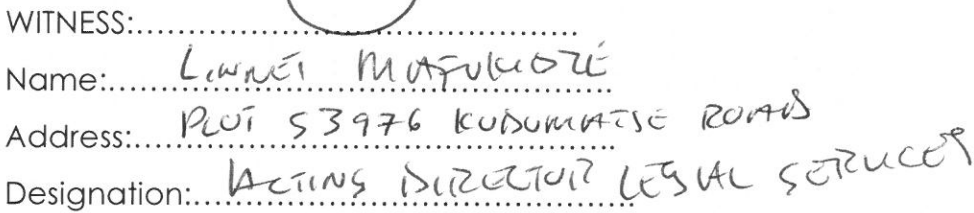 WITNESS:..........................................
Name:..... Linnet ..........................................
Address:.... PLOT 53976 KUDUMATSE ROAD
Designation:.... ACTING DIRECTOR LEGAL SERVICES